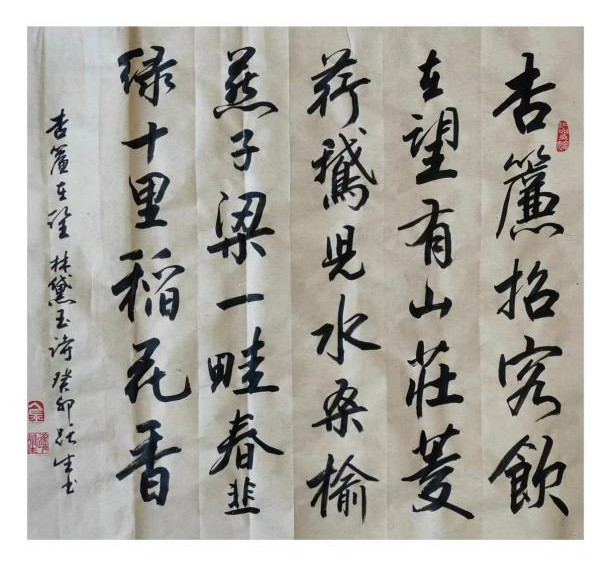 杏簾招客飲
在望有山莊菱
荇鵝兒水桑榆
燕子梁一畦春韭
绿十里稻花香
杏簾在望 林黛玉詩 癸卯 生书